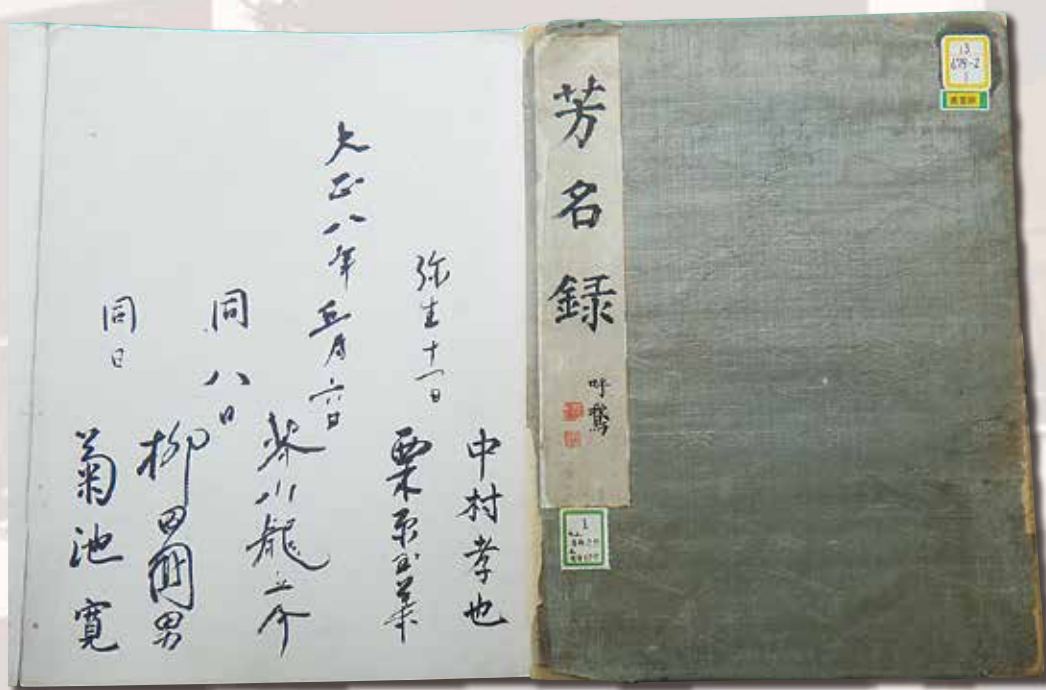 13
679-2
1
芳名録
1
中村孝也
弥生十一日 栗原玉葉
大正八年五月六日 芥川龍之介
同八日 柳田國男
同日 菊池寛